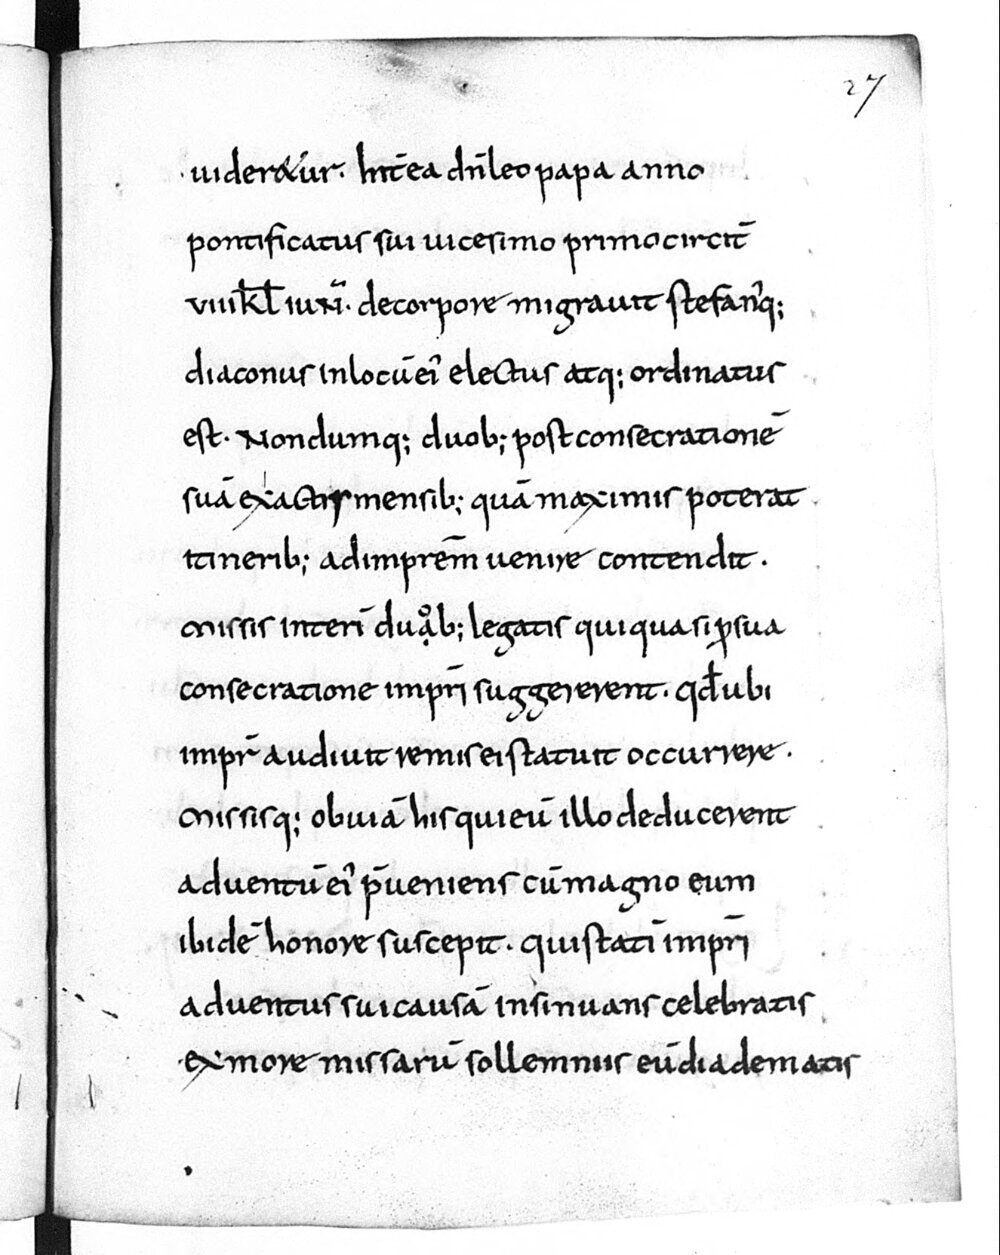 27
uideretur. Int̄ea dn̄ leo papa anno
pontificatus sui uicesimo primo circit̄
viii kl̄ iun̄. de corpore migrauit stefanꝰq;
diaconus in locū eiꝰ electus atq; ordinatus
est. Nondumq; duob; post consecrationē
suā exactis mensib; quā maximis poterat
itinerib; ad impr̄em uenire contendit.
missis interī duab; legatis qui quasi ꝓ sua
consecratione impr̄i suggererent. qd̄ ubi
impr̄ audiuit remis ei statuit occurrere.
missisq; obuiā his qui eū illo deducerent
aduentū eiꝰ p̄ueniens cū magno eum
ibidē honore suscepit. qui statī impr̄i
aduentus sui causā insinuans celebratis
ex more missarū sollemniis eū diadematis